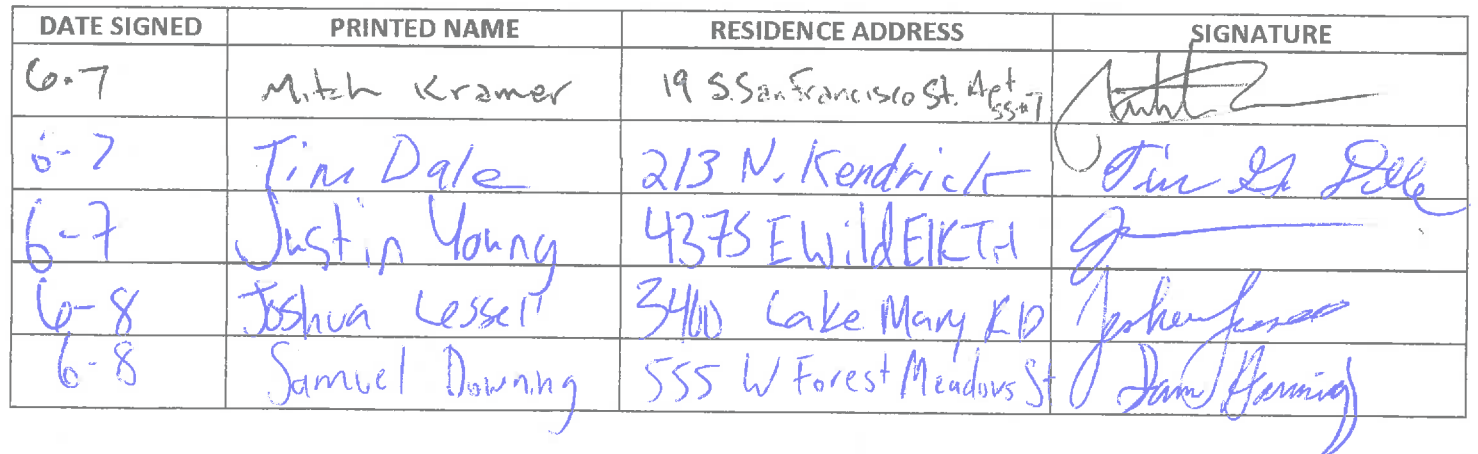 DATE SIGNED PRINTED NAME RESIDENCE ADDRESS SIGNATURE
6-7 Mitch Kramer 19 S. San Francisco St. Apt SS#7
6-7 Tim Dale 213 N. Kendrick Tim
6-7 Justin Young 4375 E Wild Elk Trl
6-8 Joshua Lessell 3400 Lake Mary RD Joshua
6-8 Samuel Downing 555 W Forest Meadows St Sam Downing